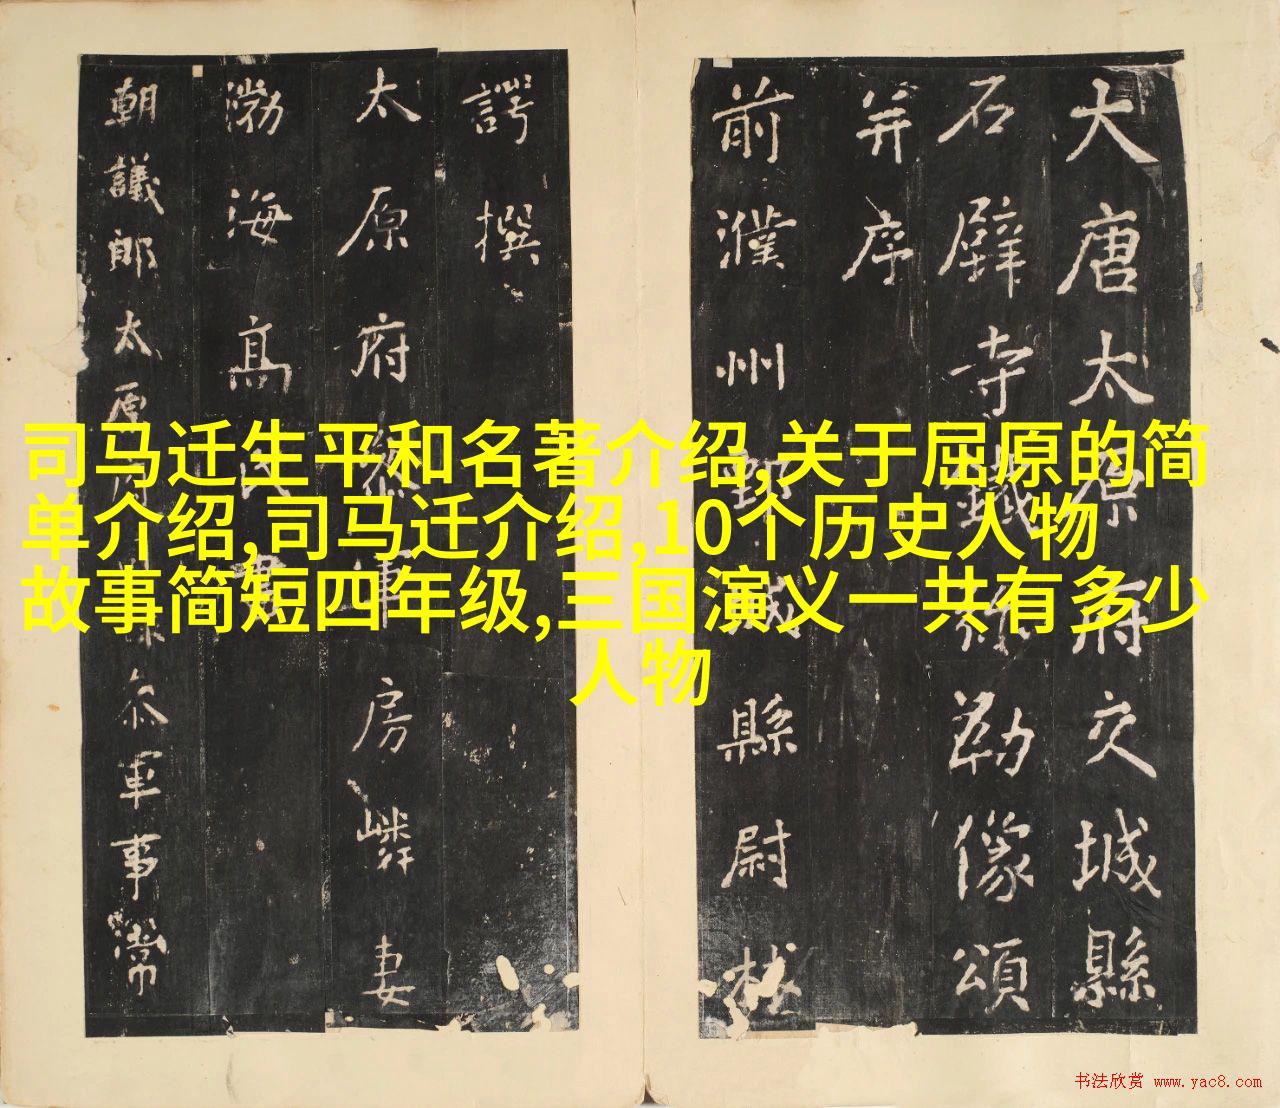 司马迁生平和名著介绍,关于屈原的简
单介绍,司马迁介绍,10个历史人物
故事简短四年级,三国演义一共有多少
人物
大唐太原府交城縣
石壁寺鐵彌勒像頌
并序
前濮州鄄城縣尉林
諤撰
太原府叅軍房嶙妻
渤海高氏書
朝議郎太原府司叅軍事常
书法欣赏 www.yac8.com